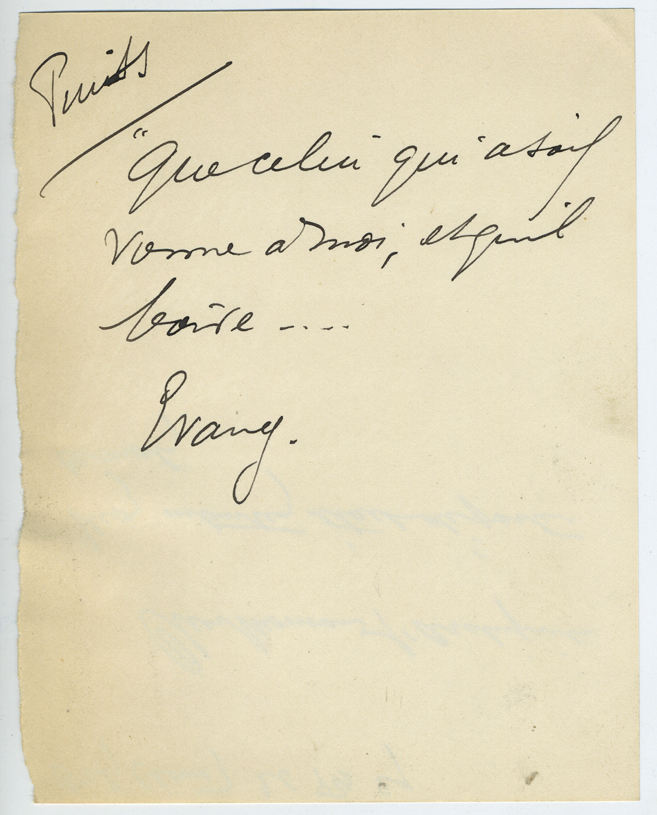 Puits
"Que celui qui a soif
vienne à moi, et qu'il
boive ....
Evang.